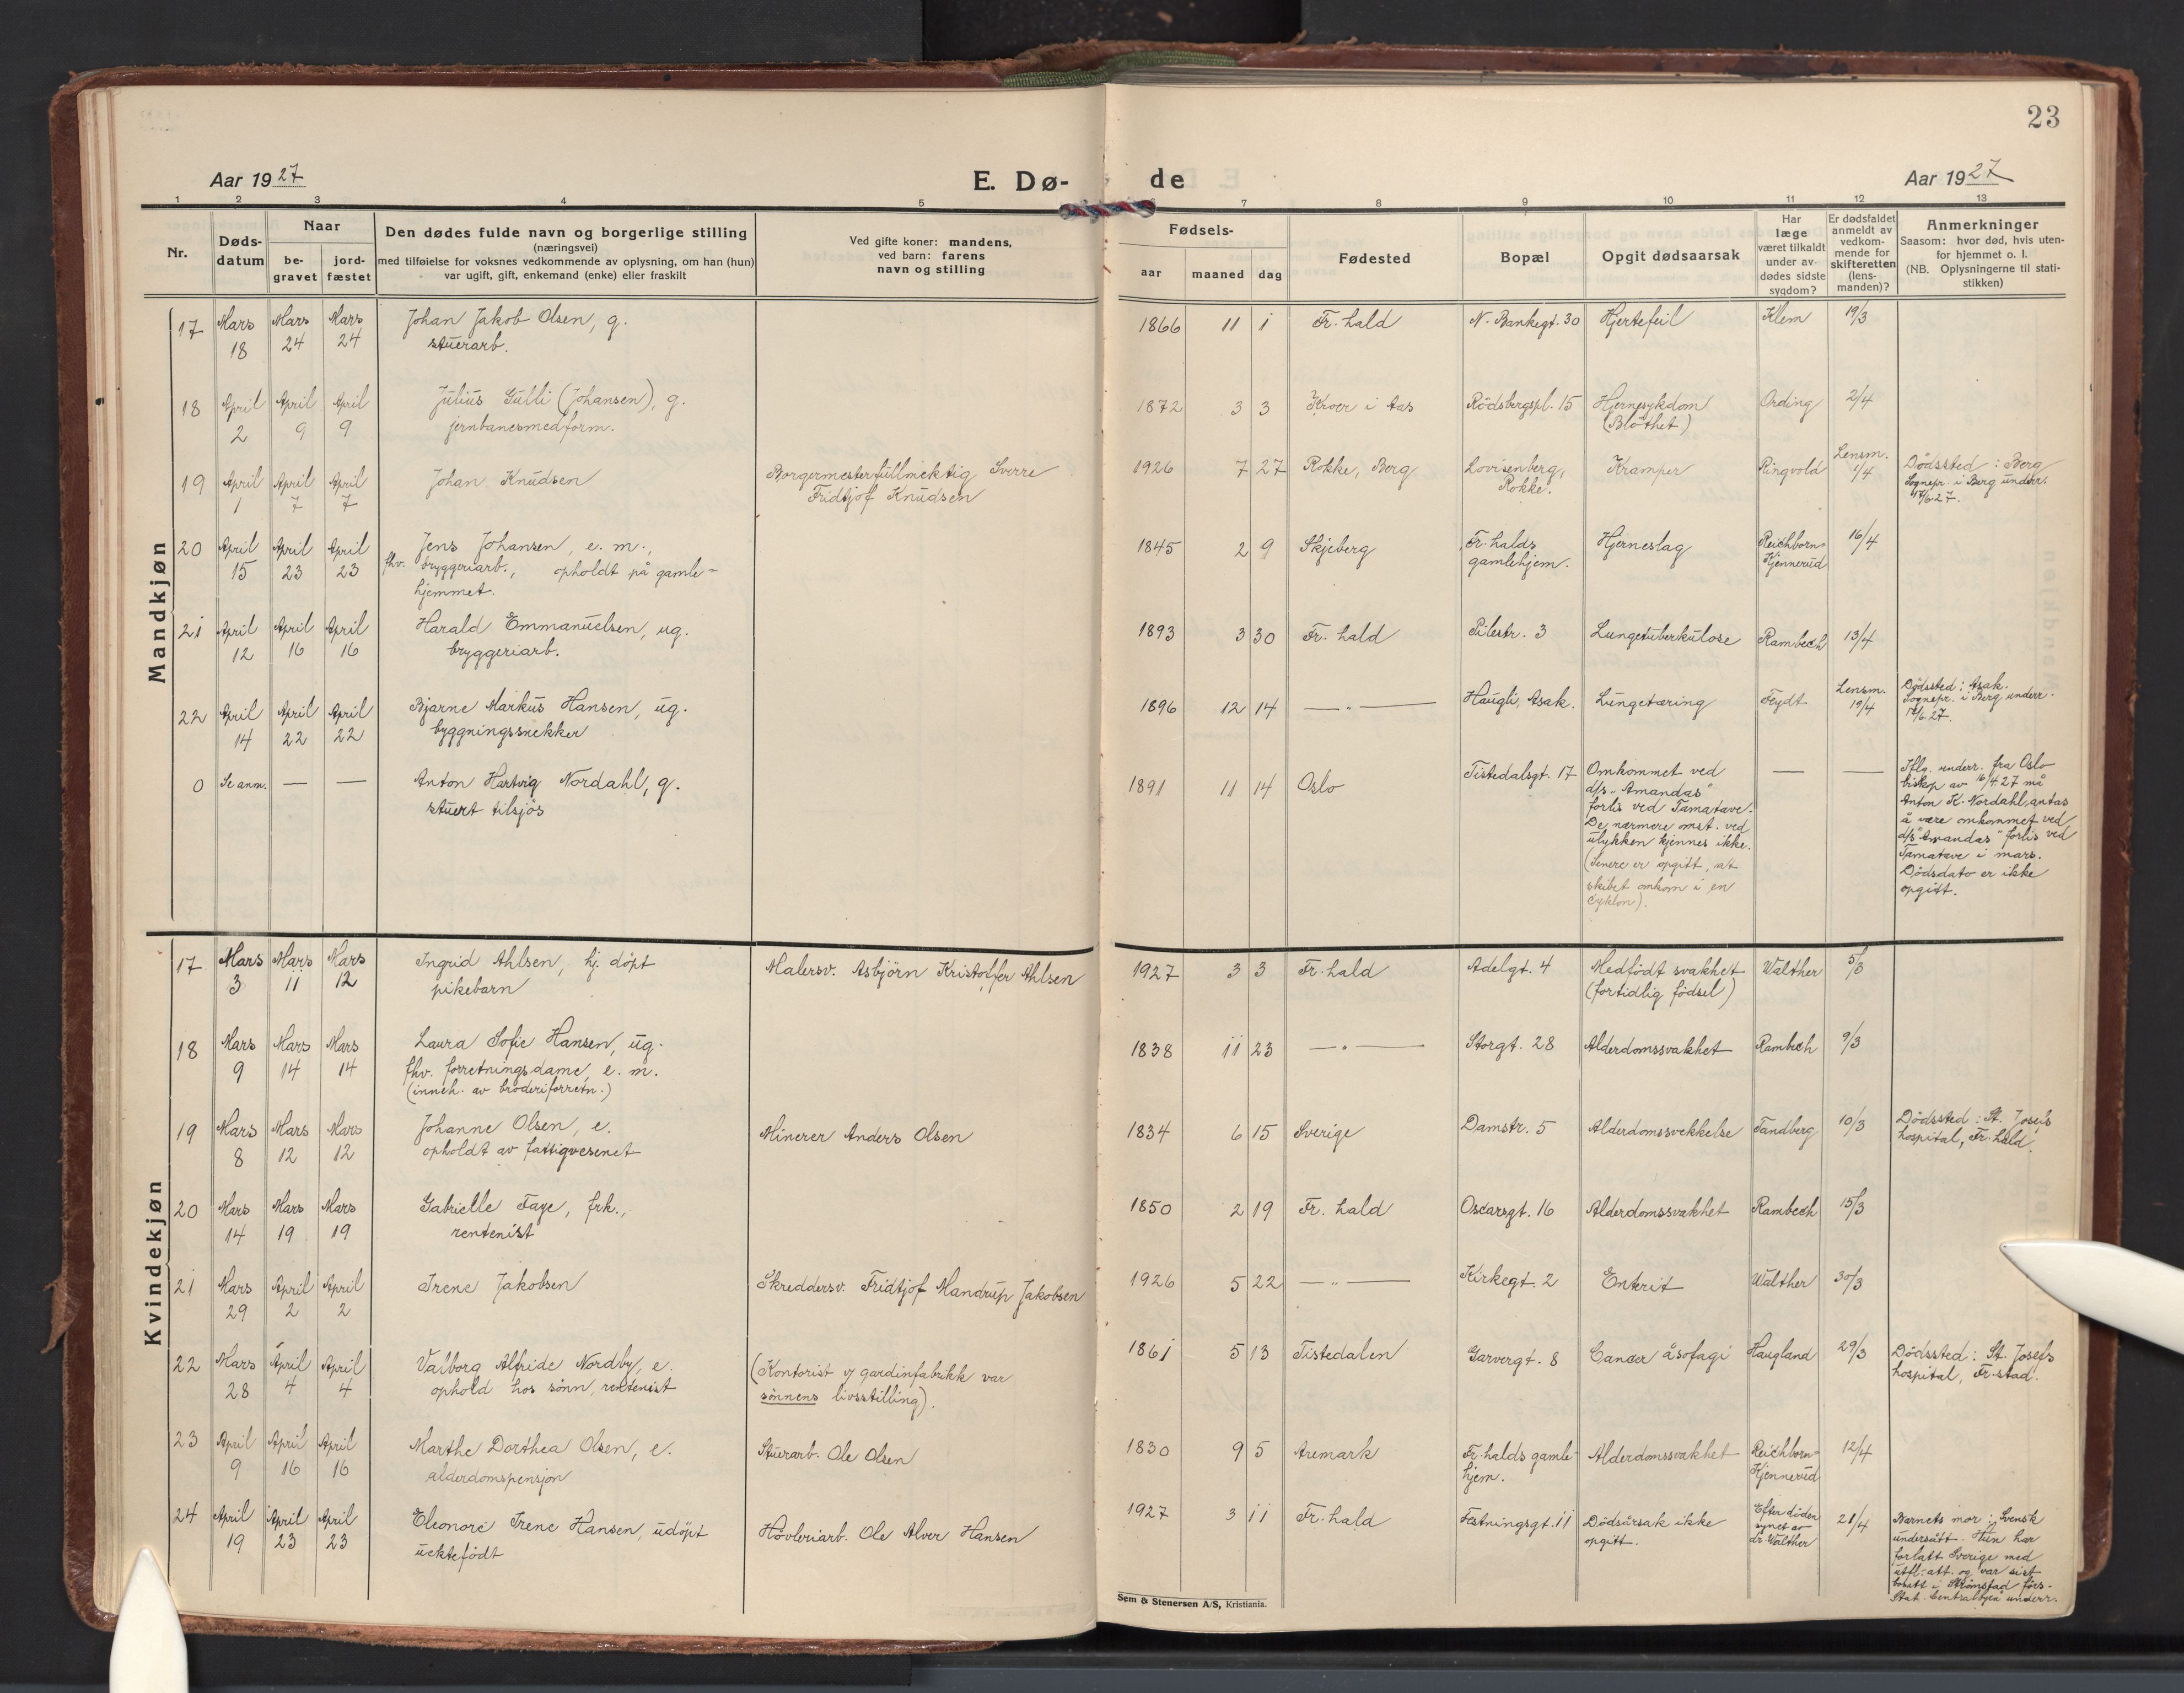 23
Aar 1927
E. Dø-
de
Aar 1927
1 2 3 4 5 7 8 9 10 11 12 13
Nr.
Døds-
datum
Naar
be-
gravet
jord-
fæstet
Den dødes fulde navn og borgerlige stilling
(næringsvei)
med tilføielse for voksnes vedkommende av oplysning, om han (hun)
var ugift, gift, enkemand (enke) eller fraskilt
Ved gifte koner: mandens,
ved barn: farens
navn og stilling
Fødsels-
aar
maaned
dag
Fødested
Bopæl
Opgit dødsaarsak
Har
læge
været tilkaldt
under av-
dødes sidste
sygdom?
Er dødsfaldet
anmeldt av
vedkom-
mende for
skifteretten
(lens-
manden)?
Anmerkninger
Saasom: hvor død, hvis uten-
for hjemmet o. l.
(NB. Oplysningerne til stati-
stikken)
Mandkjøn
17 Mars Mars Mars Johan Jakob Olsen, g. 1866 11 1 Fr.hald N. Bankegt. 30 Hjertefeil Klem 19/3
18 24 24 stuerarb.
18 April April April Julius Gulli (Johansen), g. 1872 3 3 Kroer i Aas Rödsbergspl. 15 Hjernesykdom Ording 2/4
2 9 9 jernbanesmedform. (Blöthet)
19 April April April Johan Knudsen Borgermesterfullmektig Sverre 1926 7 27 Rokke, Berg Lovisenberg, Kramper Ringvold Lensm. Dödssted: Berg
1 7 7 Fridtjof Knudsen Rokke. 1/4 Sognepr. i Berg underr.
17/6 27.
20 April April April Jens Johansen, e. m., 1845 2 9 Skjeberg Fr.halds Hjerneslag Reichborn- 16/4
15 23 23 fhv. bryggeriarb., opholdt på gamle- gamlehjem. Kjennerud
hjemmet.
21 April April April Harald Emmanuelsen, ug. 1893 3 30 Fr. hald Pilestr. 3 Lungetuberkulose Rambech 13/4
12 16 16 bryggeriarb.
22 April April April Bjarne Markus Hansen, ug. 1896 12 14 — " — Haugli, Asak. Lungetæring Feydt Lensm. Dödssted: Asak.
14 22 22 bygningssnekker 19/4 Sognepr. i Berg underr.
17/6 27.
0 Se anm. — — Anton Hartvig Nordahl, g. 1891 11 14 Oslo Tistedalsgt. 17 Omkommet ved — —
stuert tilsjös
d/s „Amandas"
forlis ved Tamatave.
De nærmere omst. ved
ulykken kjennes ikke.
(Senere er opgitt, at
skibet omkom i en
cyklon).
Iflg. underr. fra Oslo
biskop av 16/4 27 må
Anton K. Nordahl antas
å være omkommet ved
d/s "Amandas" forlis ved
Tamatave i mars.
Dödsdato er ikke
opgitt.
Kvindekjøn
17 Mars Mars Mars Ingrid Ahlsen, hj. döpt Malersv. Asbjörn Kristoffer Ahlsen 1927 3 3 Fr.hald Adelgt. 4 Medfödt svakhet Walther 5/3
3 11 12 pikebarn (fortidlig födsel)
18 Mars Mars Mars Laura Sofie Hansen, ug. 1838 11 23 — " — Storgt. 28 Alderdomssvakhet Rambech 9/3
9 14 14 fhv. forretningsdame, e. m.
(inneh. av broderiforretn.)
19 Mars Mars Mars Johanne Olsen, e. Minerer Anders Olsen 1834 6 15 Sverige Damstr. 5 Alderdomssvekkelse Tandberg 10/3 Dödssted: St. Josefs
8 12 12 opholdt av fattigvesenet hospital, Fr.hald.
20 Mars Mars Mars Gabrielle Faye, frk., 1850 2 19 Fr. hald Oscarsgt. 16 Alderdomssvakhet Rambech 15/3
14 19 19 rentenist
21 Mars April April Irene Jakobsen Skreddersv. Fridtjof Mandrup Jakobsen 1926 5 22 — " — Kirkegt. 2 Enterit Walther 30/3
29 2 2
22 Mars April April Valborg Alfride Nordby, e. (Kontorist v/ gardinfabrikk var 1861 5 13 Tistedalen Garvergt. 8 Cancer åsofagi Haugland 29/3 Dödssted: St. Josefs
28 4 4 ophold hos sönn, rentenist sönnens livsstilling). hospital, Fr.stad.
23 April April April Marthe Dorthea Olsen, e. Stuerarb. Ole Olsen 1830 9 5 Aremark Fr.halds gamle- Alderdomssvakhet Reichborn- 12/4
9 16 16 alderdomspensjon hjem. Kjennerud
24 April April April Eleonore Irene Hansen, udöpt Hövleriarb. Ole Alver Hansen 1927 3 11 Fr.hald Festningsgt. 11 Dödsårsak ikke 21/4
19 23 23 uektefödt opgitt.
Efter döden
synet av
dr. Walther
Barnets mor: Svensk
undersått. Hun har
forlatt Sverige med
utfl.-att. og var sist
bosatt i Strömstad förs.
Stat. Centralbyrå underr.
Sem & Stenersen A/S, Kristiania.